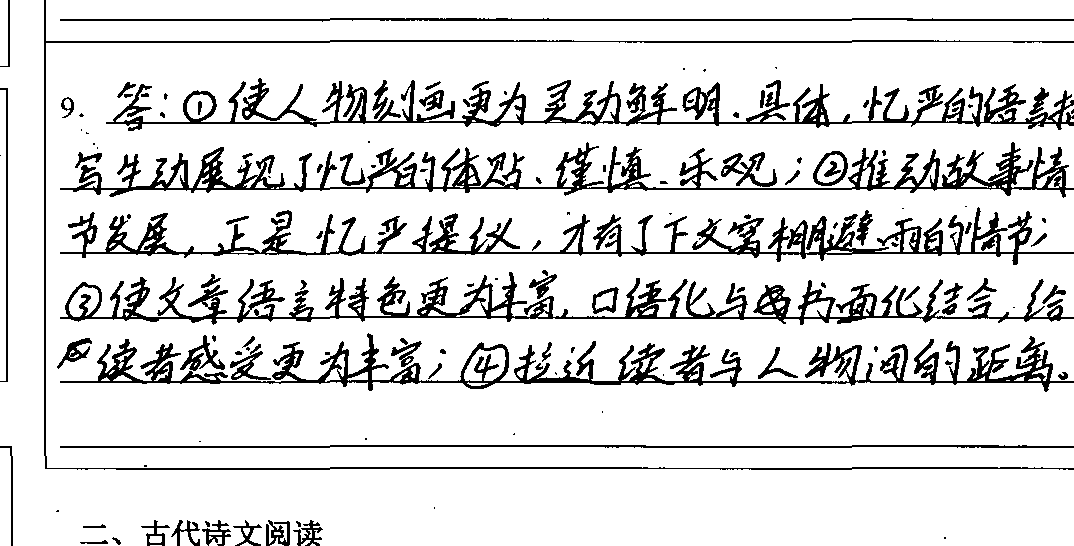 9. 答:①使人物刻画更为灵动鲜明、具体,忆严的语言描
写生动展现了忆严的体贴、谨慎、乐观;②推动故事情
节发展,正是忆严提议,才有了下文窝棚避雨的情节;
③使文章语言特色更为丰富,口语化与书面化结合,给
读者感受更为丰富;④拉近读者与人物间的距离。
二、古代诗文阅读